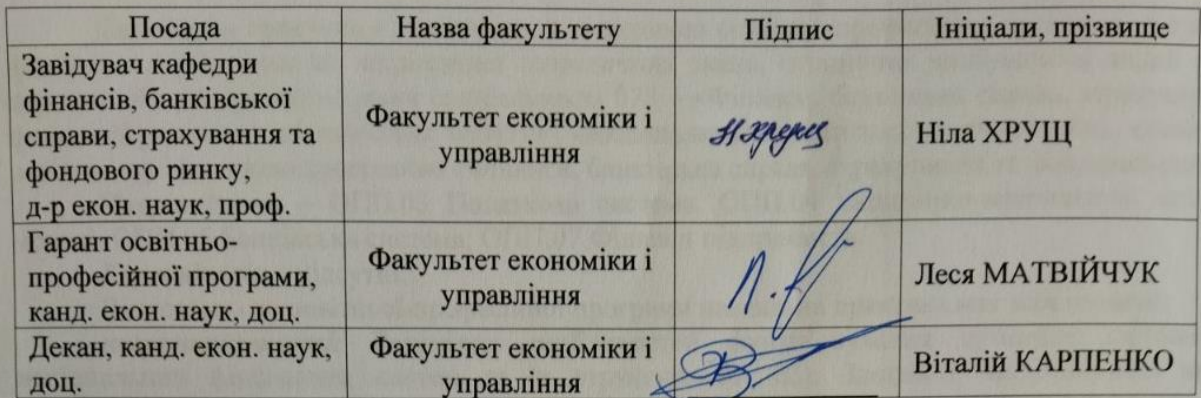 Посада Назва факультету Підпис Ініціали, прізвище
Завідувач кафедри
фінансів, банківської
справи, страхування та
фондового ринку,
д-р екон. наук, проф.
Факультет економіки і
управління
Н.Хрущ
Ніла ХРУЩ
Гарант освітньо-
професійної програми,
канд. екон. наук, доц.
Факультет економіки і
управління
Леся МАТВІЙЧУК
Декан, канд. екон. наук,
доц.
Факультет економіки і
управління
Віталій КАРПЕНКО